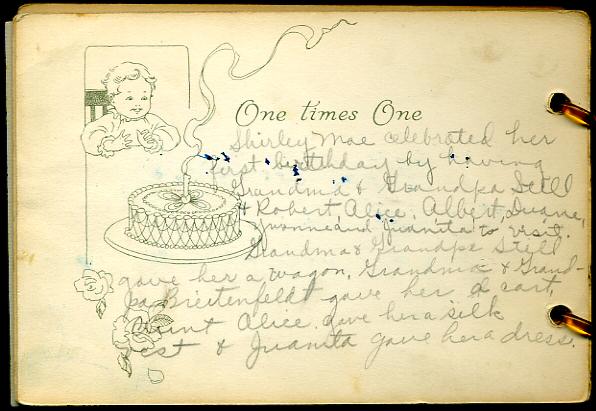 One times One
Shirley Mae celebrated her
first birthday by having
Grandma & Grandpa Still
& Robert, Alice, Albert, Duane,
Yvonne and Juanita to visit.
Grandma & Grandpa Still
gave her a wagon, Grandma & Grand-
pa Breitenfeldt gave her a cart,
Aunt Alice gave her a silk
& Juanita gave her a dress.